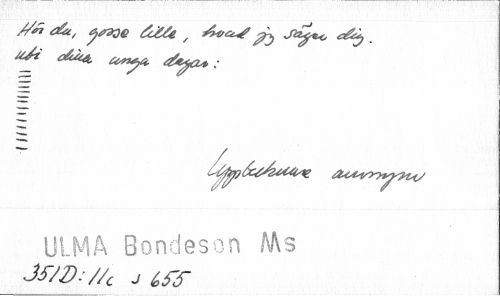 Hör du, gosse lille, hvad jg säger dig.
uti dina unga dagar:
Upptecknare anonym
ULMA Bondeson Ms
351D:11c s 655